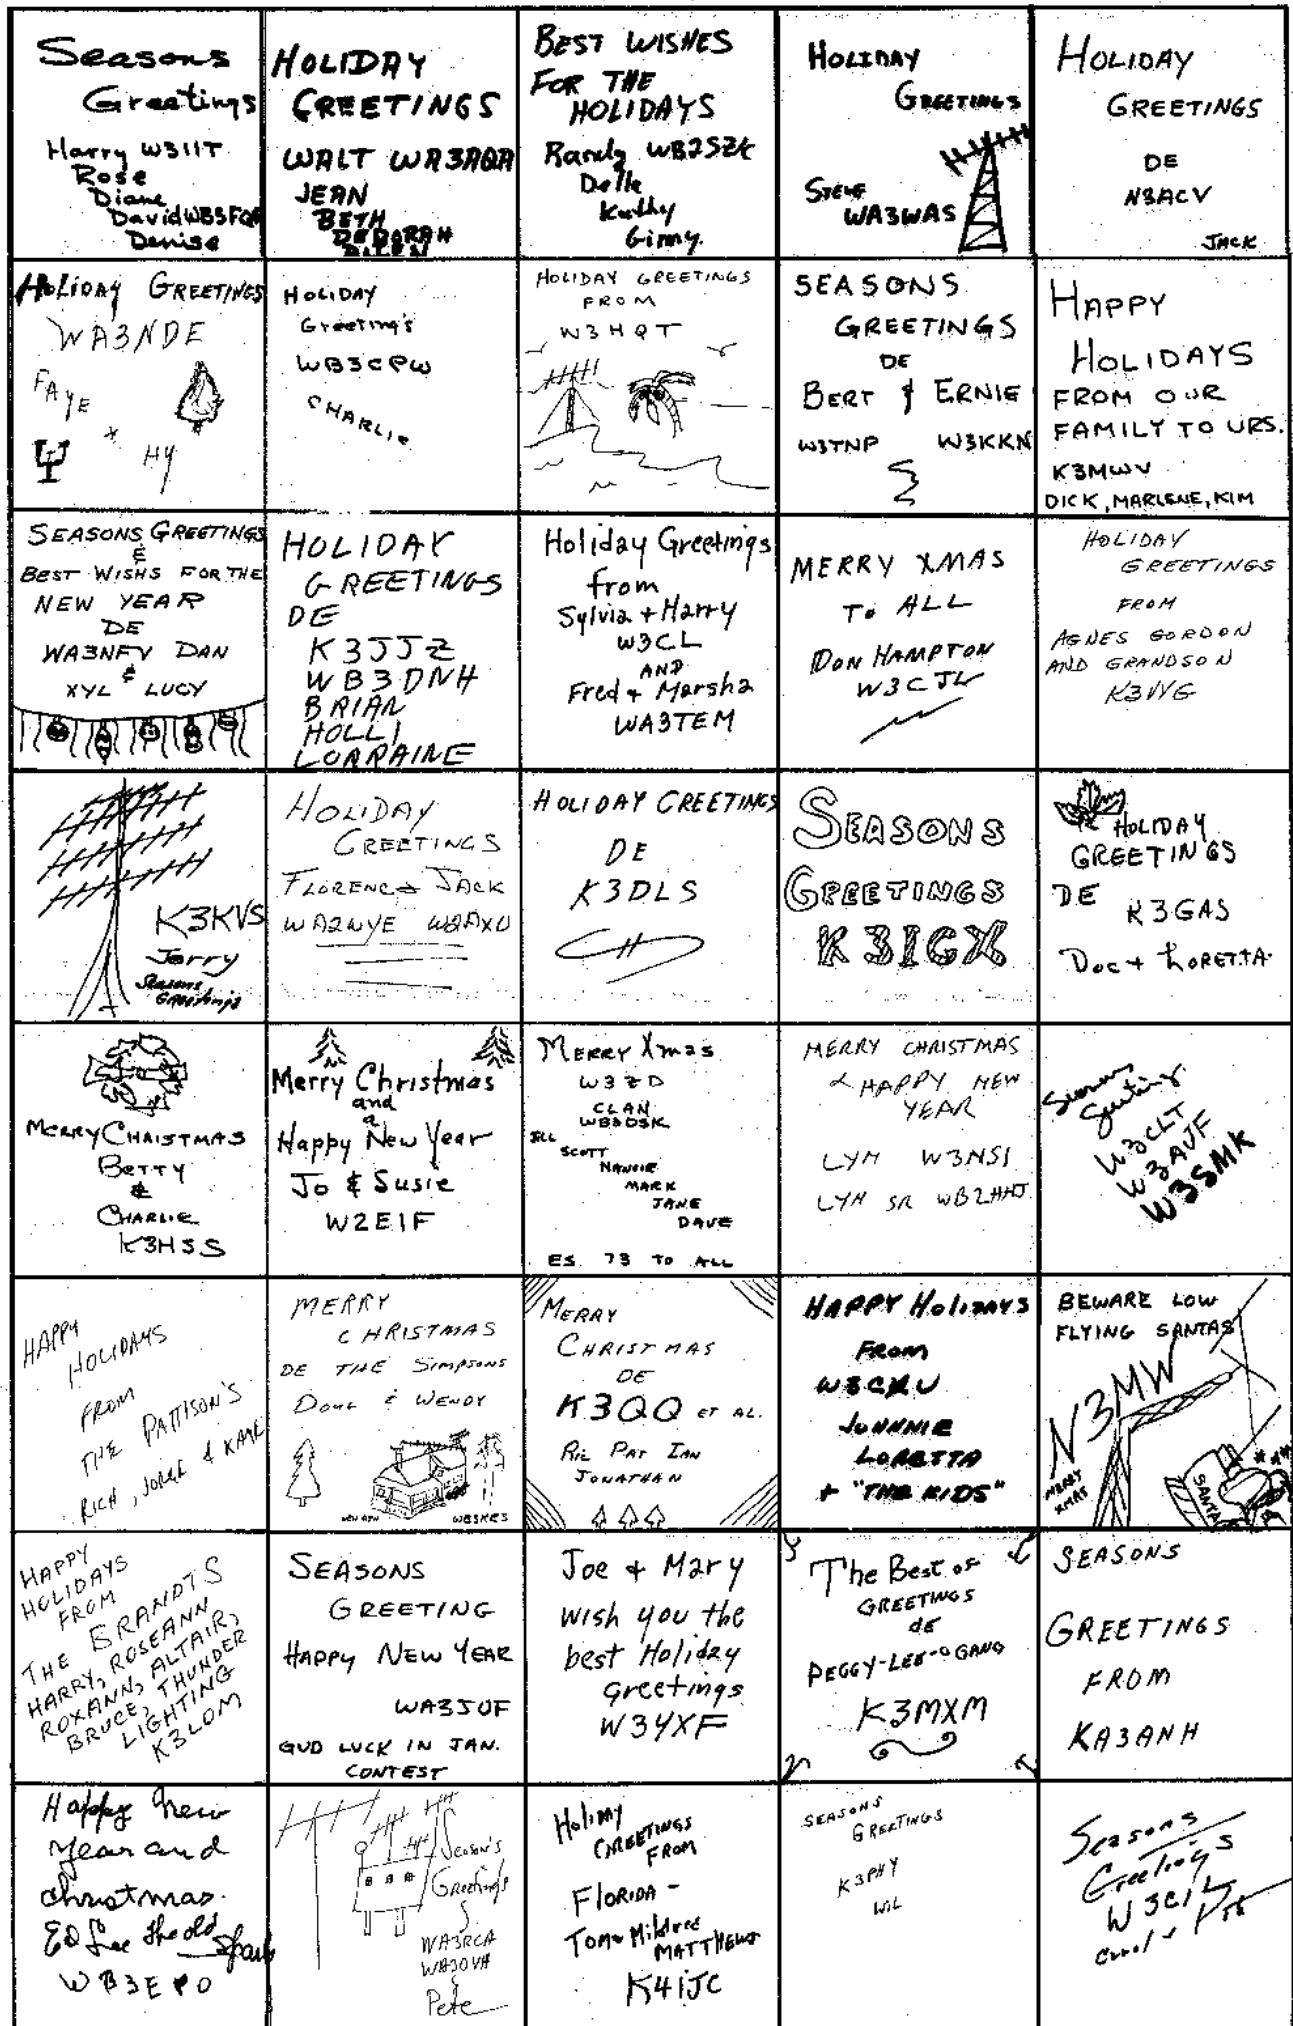 Seasons
Greetings
Harry W3IIT
Rose
Diane
David WB3FQA
Denise
HOLIDAY
GREETINGS
WALT WA3AQA
JEAN
BETH
DEBORAH
BEST WISHES
FOR THE
HOLIDAYS
Randy WB2SZK
Delle
Kathy
Ginny.
HOLIDAY
GREETINGS
STEVE
WA3WAS
HOLIDAY
GREETINGS
DE
N3ACV
JACK
HOLIDAY GREETINGS
WA3NDE
FAYE
+
HY
HOLIDAY
Greetings
WB3CPW
CHARLIE
HOLIDAY GREETINGS
FROM
W3HQT
SEASONS
GREETINGS
DE
BERT & ERNIE
W3TNP W3KKN
HAPPY
HOLIDAYS
FROM OUR
FAMILY TO URS.
K3MWV
DICK, MARLENE, KIM
SEASONS GREETINGS
&
BEST WISHS FOR THE
NEW YEAR
DE
WA3NFV DAN
&
XYL LUCY
HOLIDAY
GREETINGS
DE
K3JJZ
WB3DNH
BRIAN
HOLLI
LORRAINE
Holiday Greetings
from
Sylvia + Harry
W3CL
AND
Fred + Marsha
WA3TEM
MERRY XMAS
To ALL
DON HAMPTON
W3CJL
HOLIDAY
GREETINGS
FROM
AGNES GORDON
AND GRANDSON
K3VVG
K3KVS
Jerry
Seasons
Greetings
HOLIDAY
GREETINGS
FLORENCE JACK
WA2WYE W2AXU
HOLIDAY GREETINGS
DE
K3DLS
SEASONS
GREETINGS
K3IGX
HOLIDAY
GREETINGS
DE
K3GAS
DOC + LORETTA
MERRY CHRISTMAS
BETTY
&
CHARLIE
K3HSS
Merry Christmas
and
a
Happy New Year
Jo & Susie
W2EIF
MERRY Xmas
W3ZD
CLAN
WB3DSK
JILL
SCOTT
NANCIE
MARK
JANE
DAVE
ES 73 TO ALL
MERRY CHRISTMAS
& HAPPY NEW
YEAR
LYN W3NSI
LYN SR WB2HHJ
W3CLT
W3AVF
W3SMK
HAPPY
HOLIDAYS
FROM
THE PATTISON'S
RICH, JORGE &
MERRY
CHRISTMAS
DE THE SIMPSONS
DOUG & WENDY
MERRY
CHRISTMAS
DE
K3QQ ET AL.
RIC PAT IAN
JONATHAN
HAPPY HOLIDAYS
FROM
W3CXU
JOHNNIE
LORETTA
+ "THE KIDS"
BEWARE LOW
FLYING SANTAS
N3MW
MERRY
XMAS
SANTA
HAPPY
HOLIDAYS
FROM
THE BRANDTS
HARRY, ROSEANN
ROXANN, ALTAIR,
BRUCE, THUNDER
LIGHTING
K3LOM
SEASONS
GREETING
HAPPY NEW YEAR
WA3JUF
GUD LUCK IN JAN.
CONTEST
Joe & Mary
wish you the
best Holiday
Greetings
W3YXF
The Best of
GREETINGS
de
PEGGY-LEE-O GANG
K3MXM
SEASONS
GREETINGS
FROM
KA3ANH
Happy New
Year and
christmas.
Ed Lee the old
WB3EPO
Season's
Greetings
WA3RCA
WA3OVA
Pete
HOLIDAY
GREETINGS
FROM
FLORIDA -
TOM & Mildred
MATTHEWS
K4IJC
SEASONS
GREETINGS
K3PHY
WIL
Seasons
Greetings
W3CIL